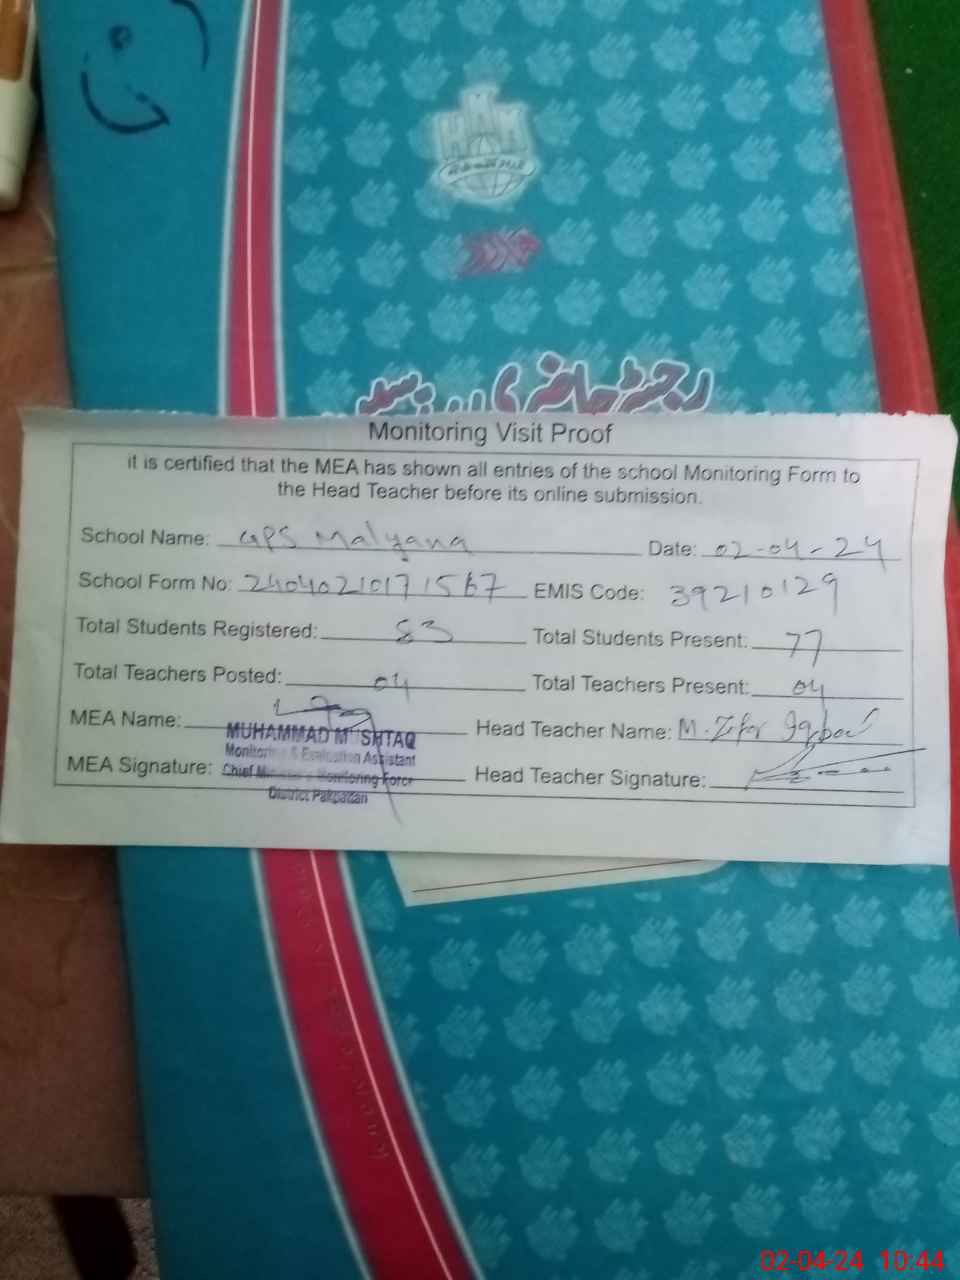 رجسٹر حاضری
Monitoring Visit Proof
it is certified that the MEA has shown all entries of the school Monitoring Form to
the Head Teacher before its online submission.
School Name: GPS Malyana Date: 02-04-24
School Form No: 24040210171567 EMIS Code: 39210129
Total Students Registered: 83 Total Students Present: 77
Total Teachers Posted: 04 Total Teachers Present: 04
MEA Name: Head Teacher Name: M. Zafar Iqbal
MUHAMMAD MUSHTAQ
Monitoring & Evaluation Assistant
MEA Signature: Head Teacher Signature:
Chief Minister's Monitoring Force
District Pakpattan
02-04-24 10:44